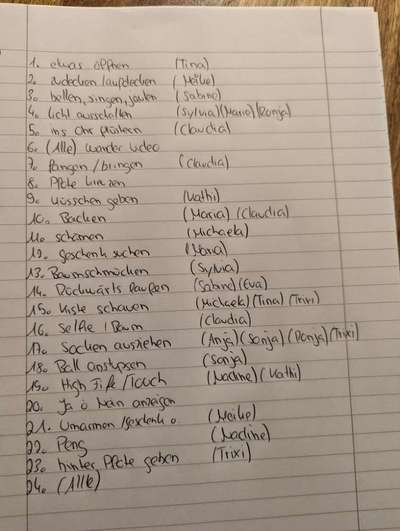 1. etwas öffnen (Tina)
2. zudecken/aufdecken (Meike)
3. bellen, singen, jaulen (Sabine)
4. Licht ausschalten (Sylvia)(Maria)(Ronja)
5. ins Ohr flüstern (Claudia)
6. (Alle) wander video
7. fangen/bringen (Claudia)
8. Pfote
9. Küsschen geben (Kathi)
10. Backen (Maria)(Claudia)
11. schämen (Michaela)
12. geschenk suchen (Maria)
13. Baumschmücken (Sylvia)
14. Rückwärts laufen (Sabine)(Eva)
15. Kiste schauen (Michaela)(Tina)(Trixi)
16. Selfie / Baum (Claudia)
17. Socken ausziehen (Anja)(Sonja)(Ronja)(Trixi)
18. Ball anstupsen (Sonja)
19. High Five/Touch (Nadine)(Kathi)
20. Ja o Nein anzeigen
21. Umarmen/geschenk o. (Meike)
22. Peng (Nadine)
23. hinter Pfote geben (Trixi)
24. (Alle)